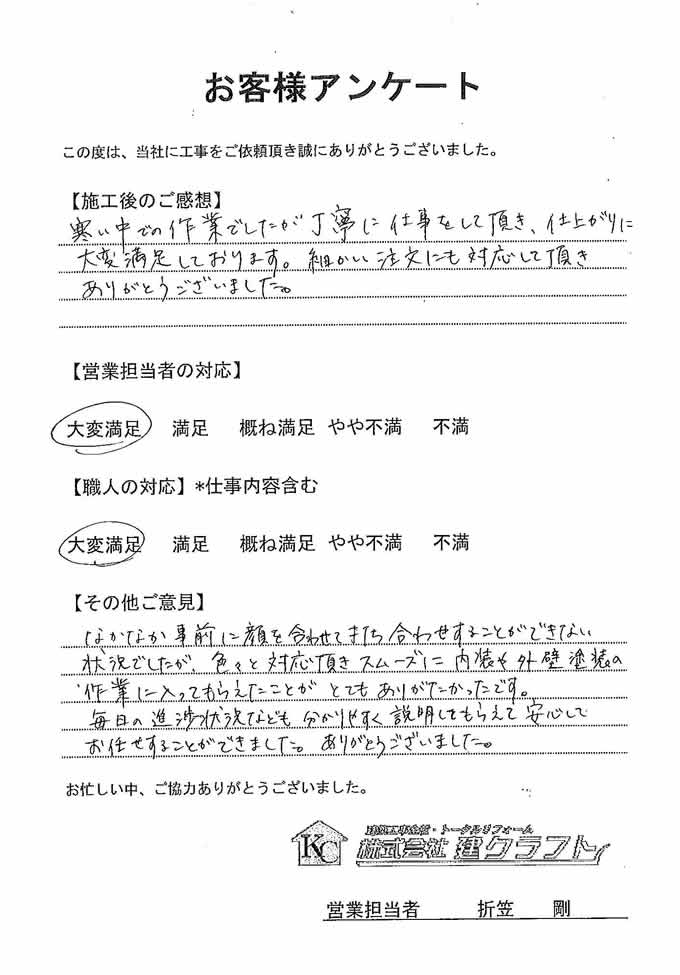 お客様アンケート
この度は、当社に工事をご依頼頂き誠にありがとうございました。
【施工後のご感想】
寒い中での作業でしたが丁寧に仕事をして頂き、仕上がりに
大変満足しております。細かい注文にも対応して頂き
ありがとうございました。
【営業担当者の対応】
大変満足 満足 概ね満足 やや不満 不満
【職人の対応】*仕事内容含む
大変満足 満足 概ね満足 やや不満 不満
【その他ご意見】
なかなか事前に顔を合わせて打ち合わせすることができない
状況でしたが、色々と対応頂きスムーズに内装や外壁塗装の
作業に入ってもらえたことがとてもありがたかったです。
毎日の進渉状況なども分かりやすく説明してもらえて安心して
お任せすることができました。ありがとうございました。
お忙しい中、ご協力ありがとうございました。
建築工事全般・トータルリフォーム
KC 株式会社 建クラフト
営業担当者 折笠 剛